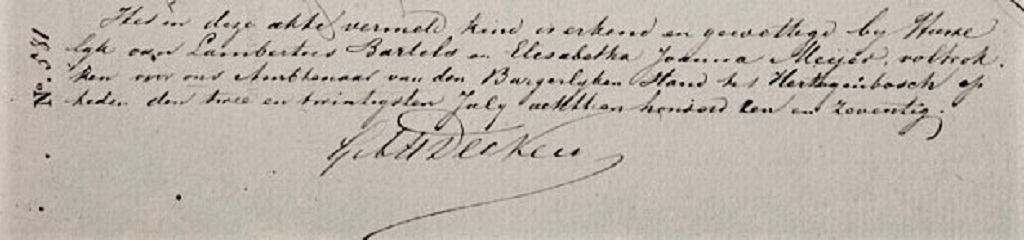 Het in deze akte vermeld kind is erkend en gewettigd by Huwe
lyk van Lambertus Bartels en Elisabetha Joanna Meijer, voltrok-
ken voor ons Ambtenaar van den Burgerlyken Stand te 's Hertogenbosch op
heden den twee en twintigsten July achttien honderd een en zeventig.
No. 581